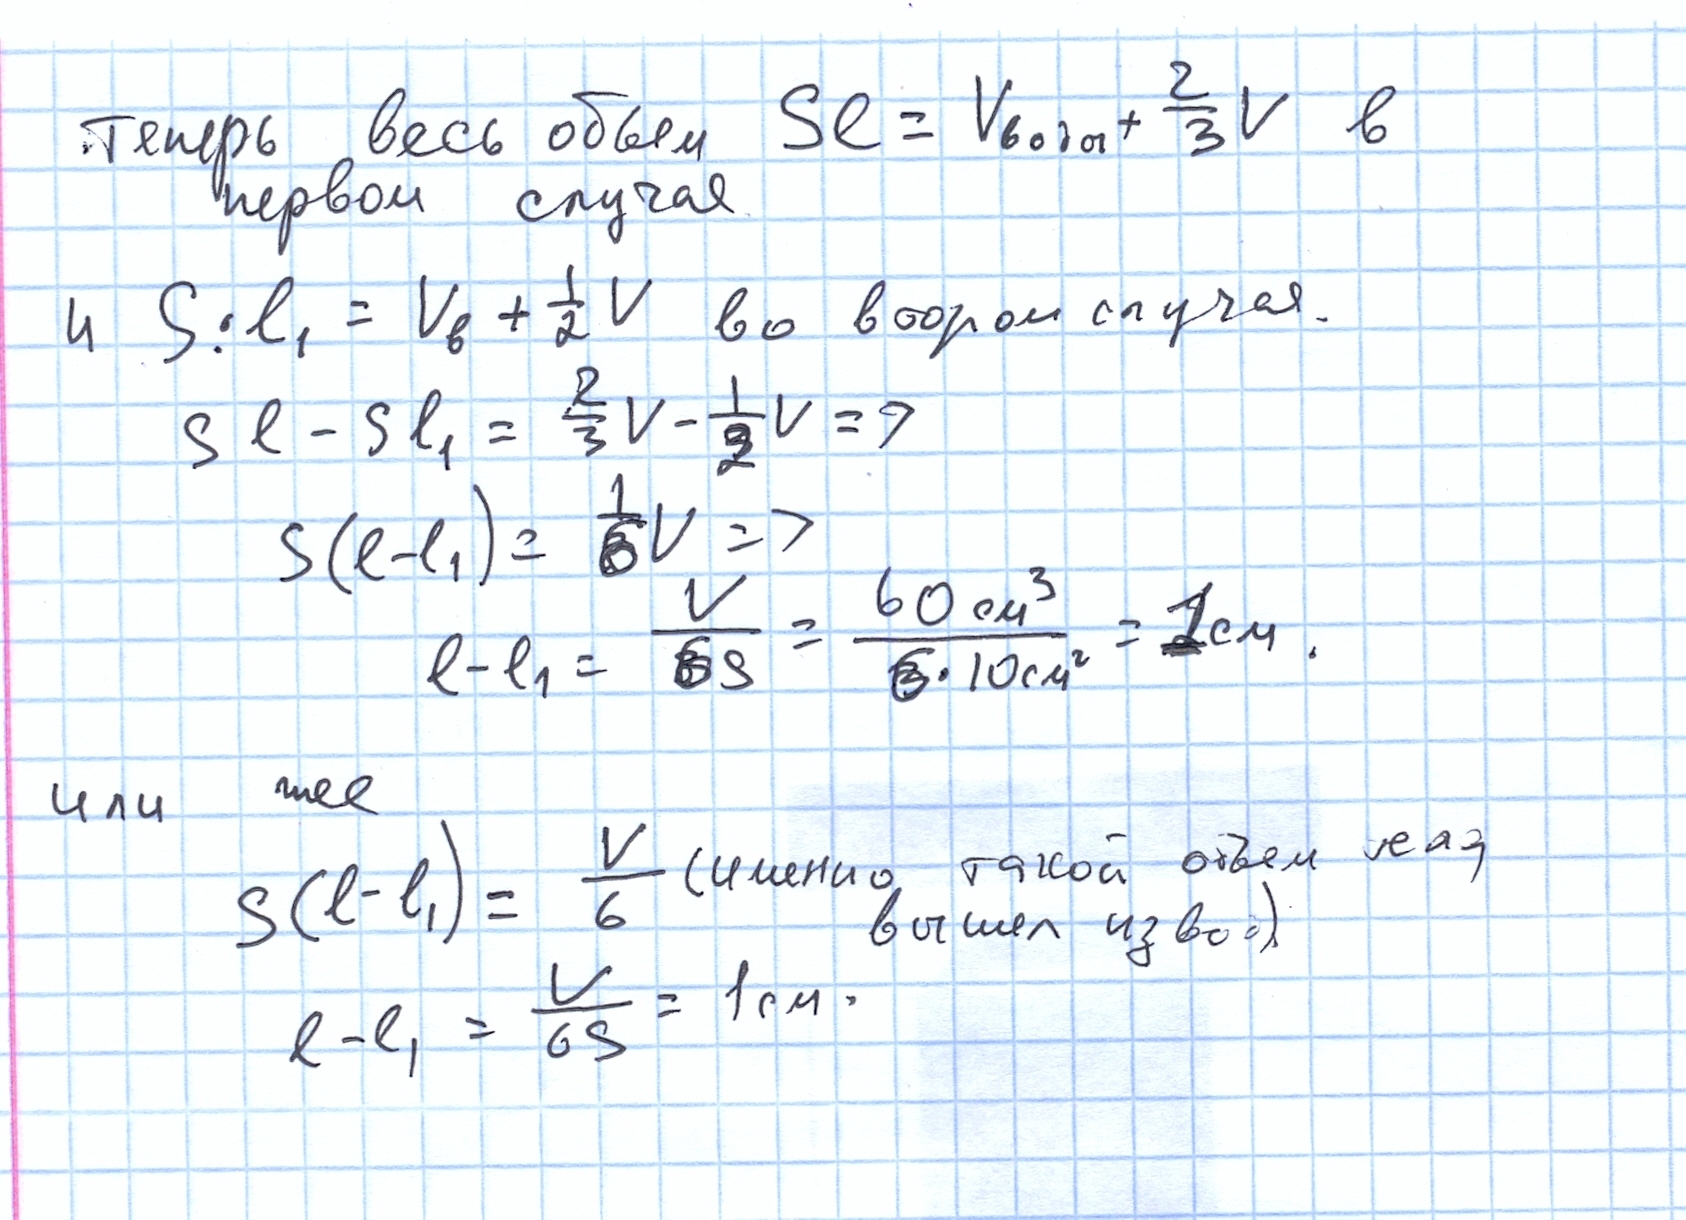 Теперь весь обьем Sl = Vводы + 2/3 V в
первом случая
и S·l₁ = Vв + 1/2 V во втором случая.
Sl - Sl₁ = 2/3 V - 1/2 V =>
S(l-l₁) = 1/6 V =>
l-l₁ = V/6S = 60 см³/6·10 см² = 1 см.
или же
S(l-l₁) = V/6 (именно такой объем
вышел из
l-l₁ = V/6S = 1 см.